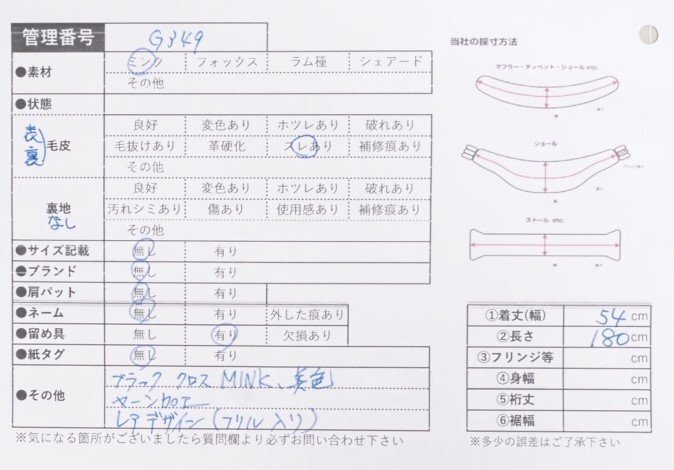 管理番号 G349
●素材 ミンク フォックス ラム種 シェアード
その他
●状態
表 裏 毛皮 良好 変色あり ホツレあり 破れあり
毛抜けあり 革硬化 スレあり 補修痕あり
その他
裏地 なし 良好 変色あり ホツレあり 破れあり
汚れシミあり 傷あり 使用感あり 補修痕あり
その他
●サイズ記載 無し 有り
●ブランド 無し 有り
●肩パット 無し 有り
●ネーム 無し 有り 外した痕あり
●留め具 無し 有り 欠損あり
●紙タグ 無し 有り
●その他 ブラック クロス MINK、美色
ヤーン加工
レアデザイン(フリル入り)
※気になる箇所がございましたら質問欄より必ずお問い合わせ下さい
当社の採寸方法
マフラー・ティペット・ショール etc.
ショール
ストール etc.
①着丈(幅) 54 cm
②長さ 180 cm
③フリンジ等 cm
④身幅 cm
⑤裄丈 cm
⑥裾幅 cm
※多少の誤差はご了承下さい